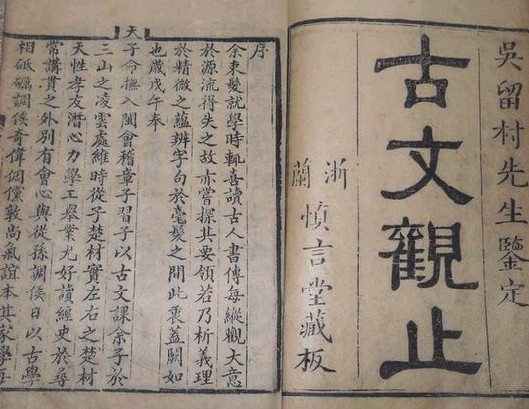 吳留村先生鑒定
古文觀止
浙蘭
慎言堂藏板
序
余束髮就學時輒喜讀古人書傳每縱觀大意
於源流得失之故亦嘗探其要領若乃析義理
於精微之蘊辨字句於毫髮之閒此衷蓋闕如
也歲戊午奉
天子命撫入閩會稽章子習子以古文課余子於
三山之凌雲處維時從子楚材實左右之楚材
天性孝友潛心力學工舉業尤好讀經史於尋
常講貫之外別有會心與從孫調侯日以古學
相砥礪調侯奇偉倜儻敦尚氣誼本其家學每